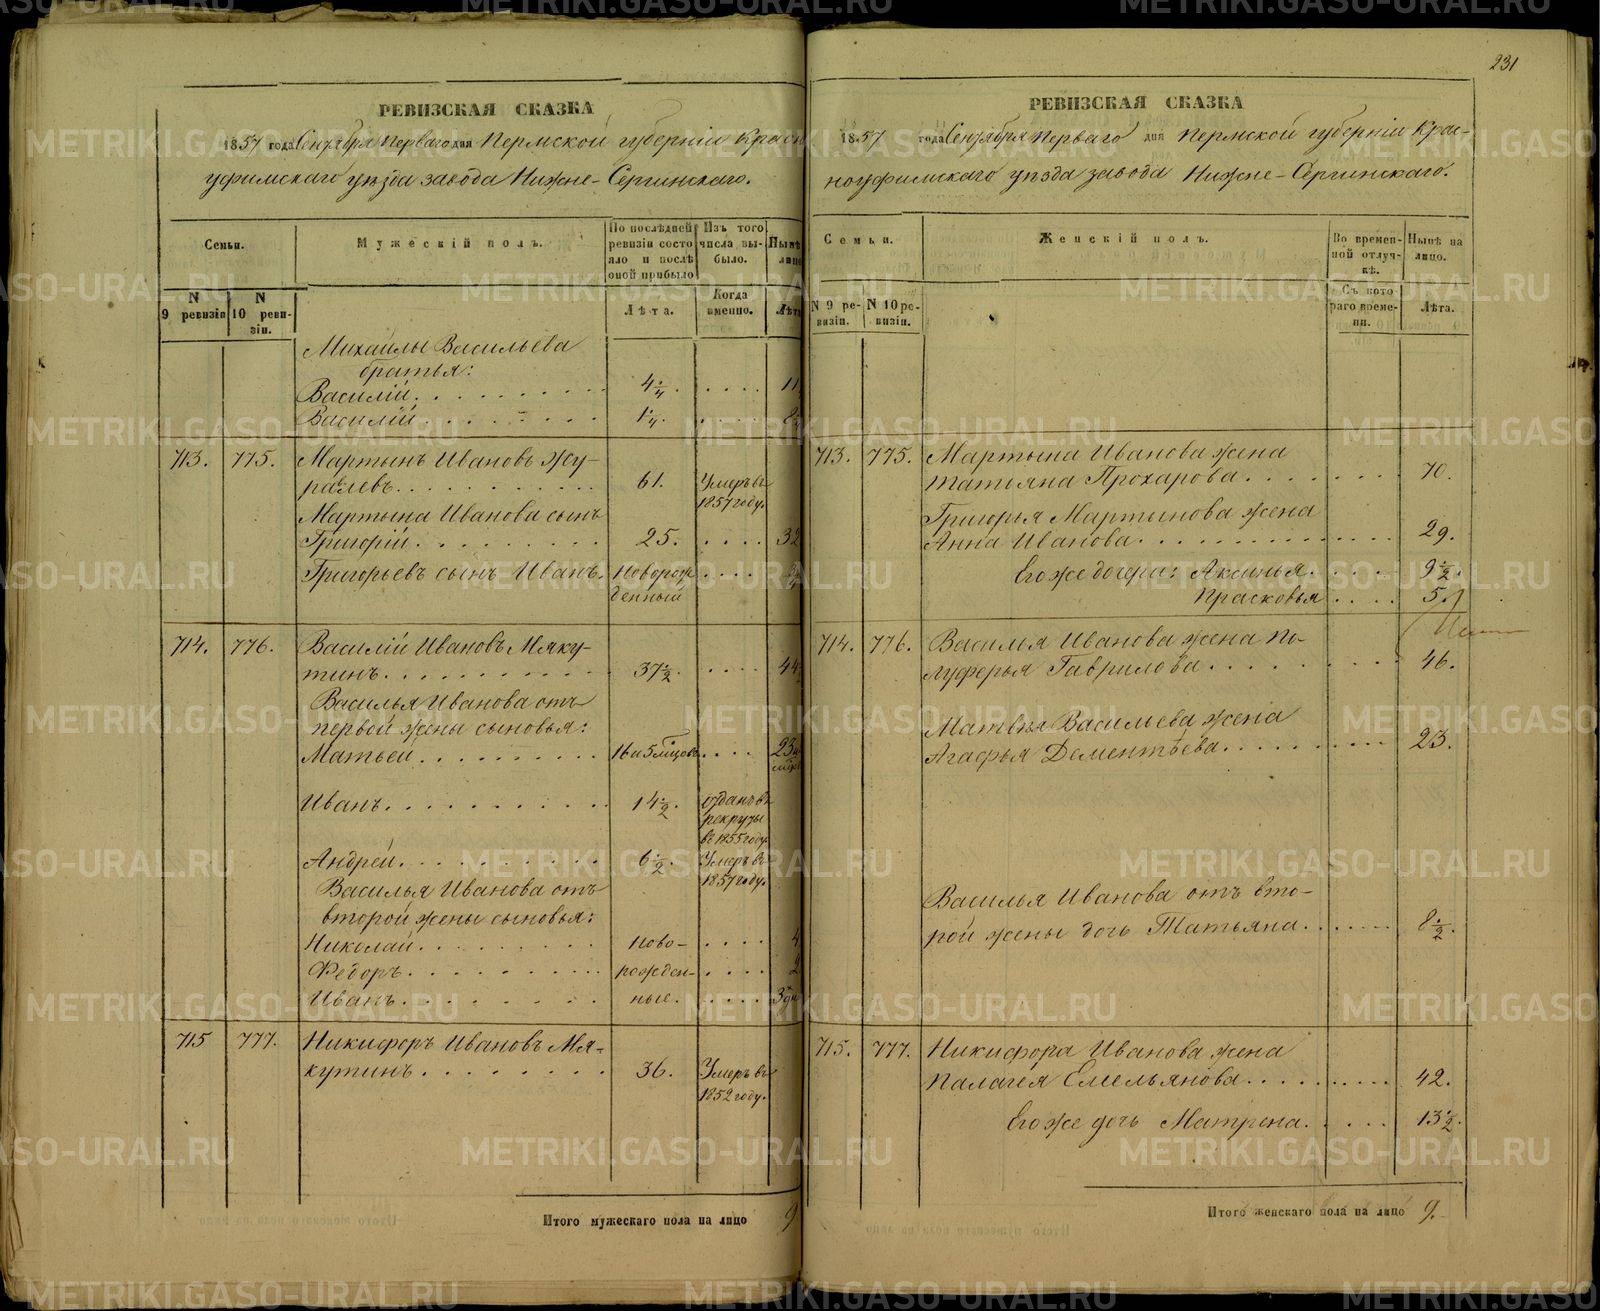 РЕВИЗСКАЯ СКАЗКА
1857 года Сентября Перваго дня Пермской губерніи Красн
уфимскаго уѣзда завода Нижне-Сергинскаго.
Семьи.
Мужескій полъ.
По послѣдней ревизіи состояло и послѣ оной прибыло
Изъ того числа выбыло.
Нынѣ лицо
N 9 ревизіи
N 10 ревизіи.
Лѣта.
Когда именно.
Лѣта
Михаилы Васильева
братья:
Василій. 4 1/4. 11
Василій. 1 1/4. 8
713. 775. Мартынъ Ивановъ Жу-
равлевъ. 61. Умеръ въ 1857 году.
Мартына Иванова сынъ
Григорій. 25. 32
Григорьевъ сынъ Иванъ. Новорож
денный
714. 776. Василій Ивановъ Мяку-
тинъ. 37 1/2. 44
Василья Иванова отъ
первой жены сыновья:
Матвей. 16 и 5 мѣсцовъ. 23
Иванъ. 14 1/2. отданъ въ
рекруты
въ 1855 году.
Андрей. 6 1/2. Умеръ въ
1857 году.
Василья Иванова отъ
второй жены сыновья:
Николай. ново- 4
Федоръ. рожден- 2
Иванъ. ные. 3 дн
715 777. Никифоръ Ивановъ Мя-
кутинъ. 36. Умеръ въ
1852 году.
Итого мужескаго пола на лицо 9
231
РЕВИЗСКАЯ СКАЗКА
1857 года Сентября Перваго дня Пермской губерніи Крас-
ноуфимскаго уѣзда завода Нижне-Сергинскаго.
Семьи.
Женскій полъ.
Во временной отлучкѣ.
Нынѣ на лицо.
N 9 ревизіи.
N 10 ревизіи.
Съ котораго времени.
Лѣта.
713. 775. Мартына Иванова жена
Татьяна Прохарова. 70.
Григорья Мартинова жена
Анна Иванова. 29.
Его же дочери: Аксинья. 9 1/2.
Прасковья 5.
714. 776. Василья Иванова жена По-
луферья Гаврилова. 46.
Матвѣя Васильева жена
Агафья Дементьева. 23.
Василья Иванова отъ вто-
рой жены дочь Татьяна. 8 1/2.
715. 777. Никифора Иванова жена
Палагея Емельянова. 42.
Его же дочь Матрена. 13 1/2.
Итого женскаго пола на лицо 9.
METRIKI.GASO-URAL.RU